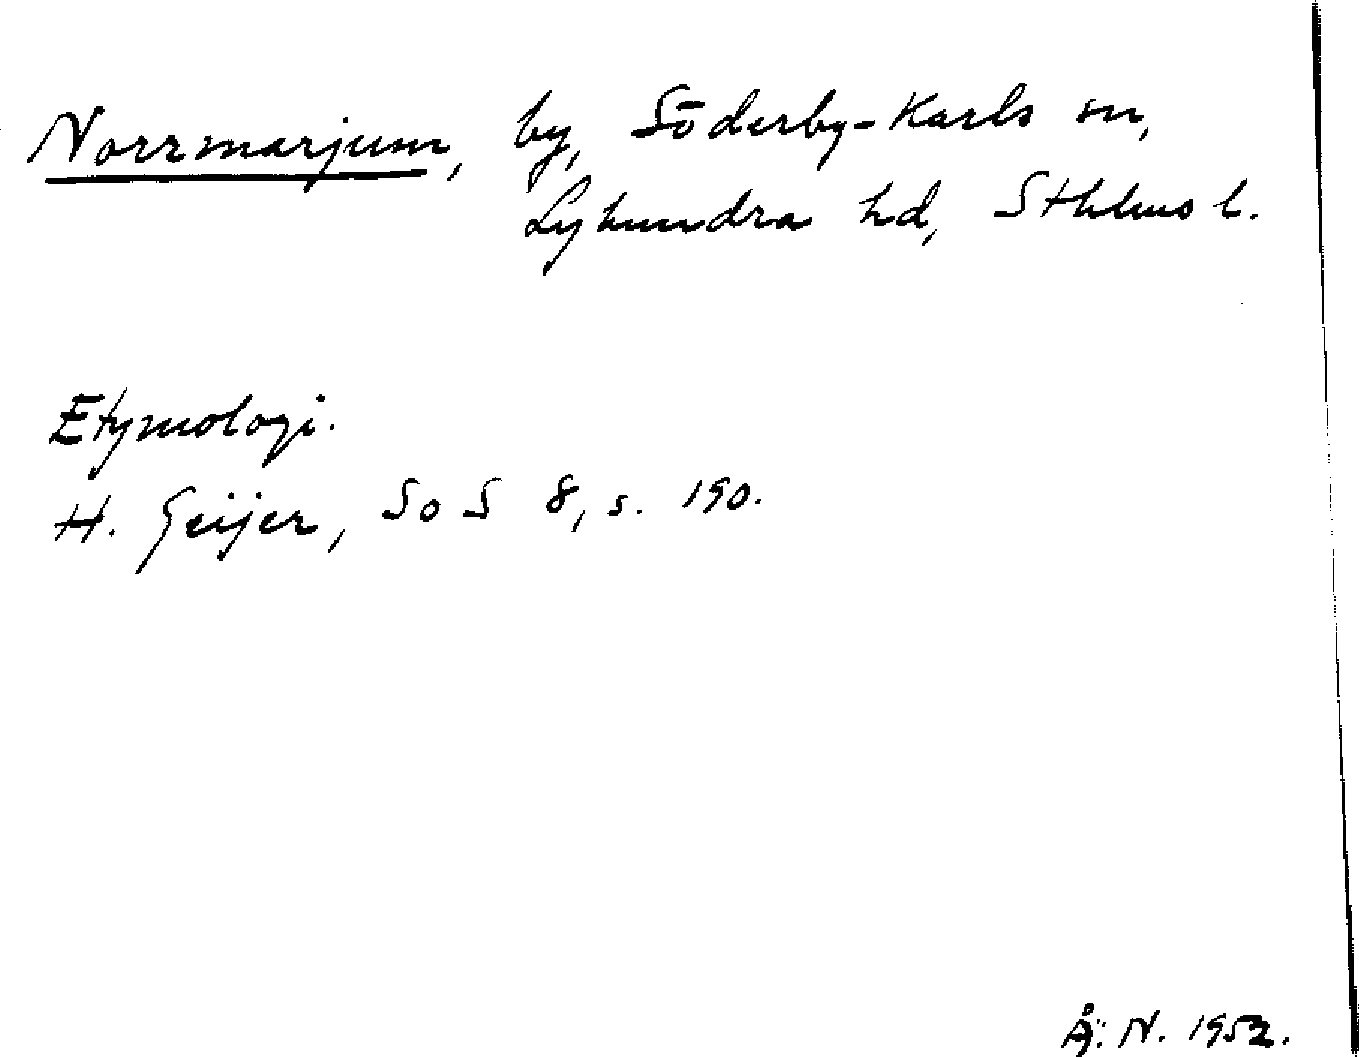 Norrmarjum, by, Söderby-Karls sn,
Lyhundra hd, Sthlms l.
Etymologi.
H. Geijer, SoS 8, s. 190.
Å. N. 1952.